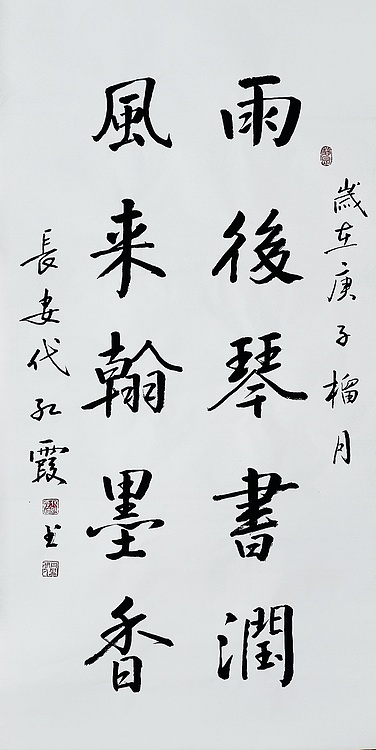 歲在庚子榴月
雨後琴書潤
風来翰墨香
長安代红霞书